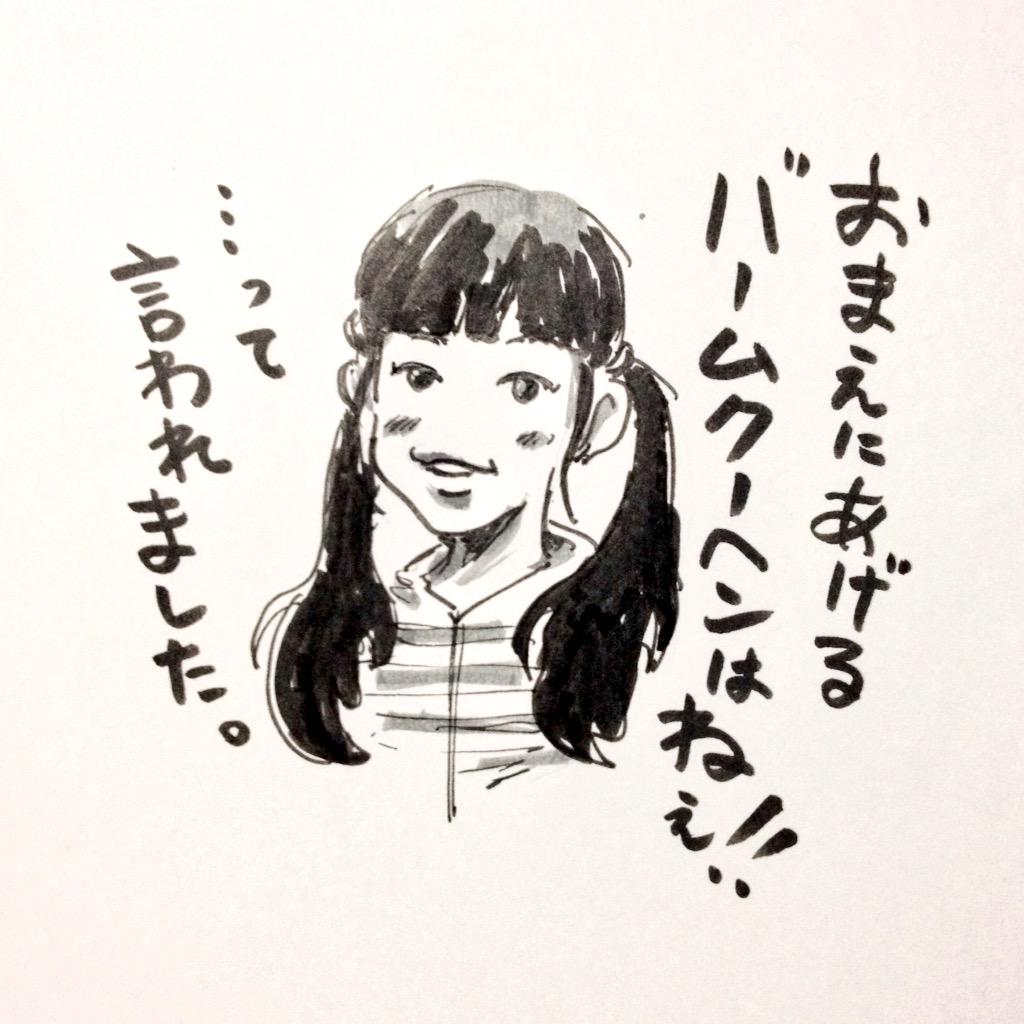 おまえにあげる
バームクーヘンは
ねぇ!!
…って
言われました。